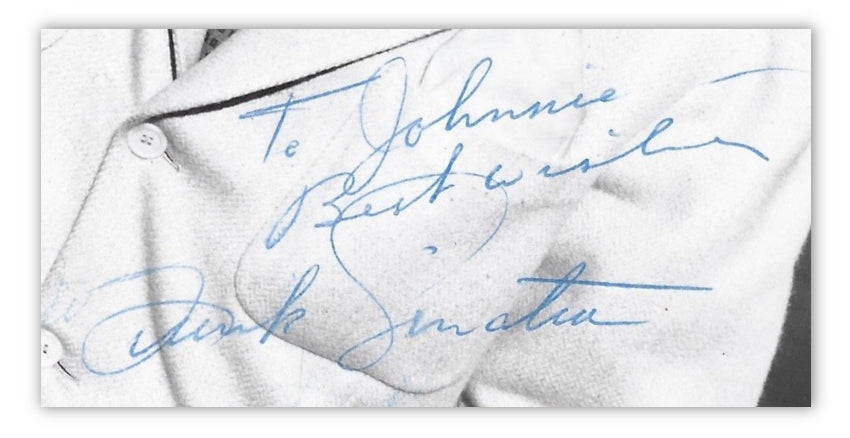 To Johnnie
Best wishes
Frank Sinatra